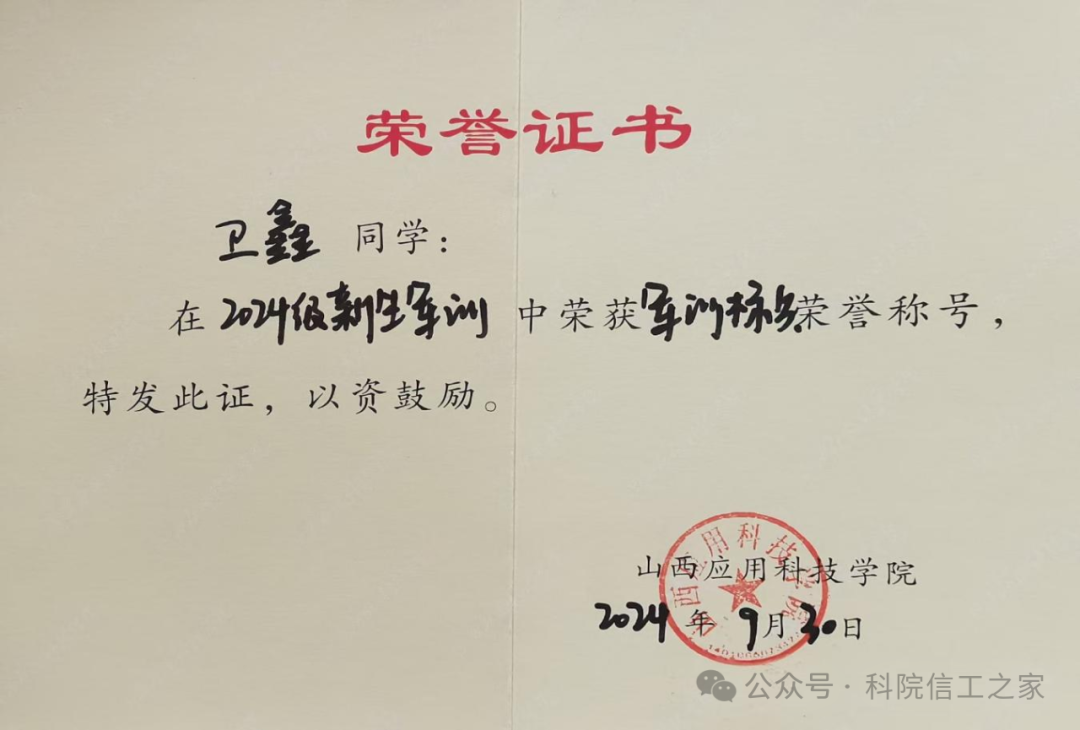 荣誉证书
卫鑫 同学：
在 2024级新生军训 中荣获 军训标兵 荣誉称号，
特发此证，以资鼓励。
山西应用科技学院
山西应用科技学院
2024 年 9 月 30 日
公众号·科院信工之家